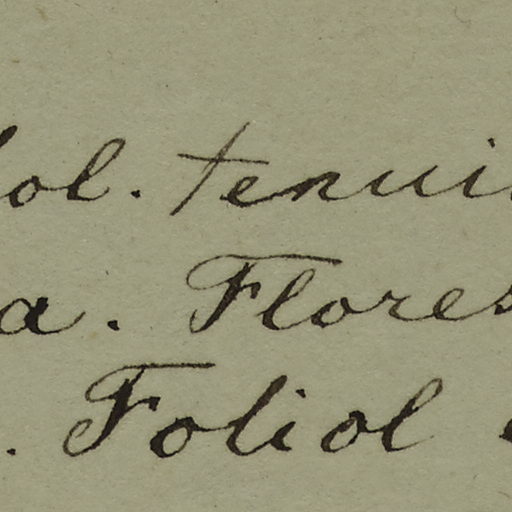 ol. tenui
a. Flores
. Foliol